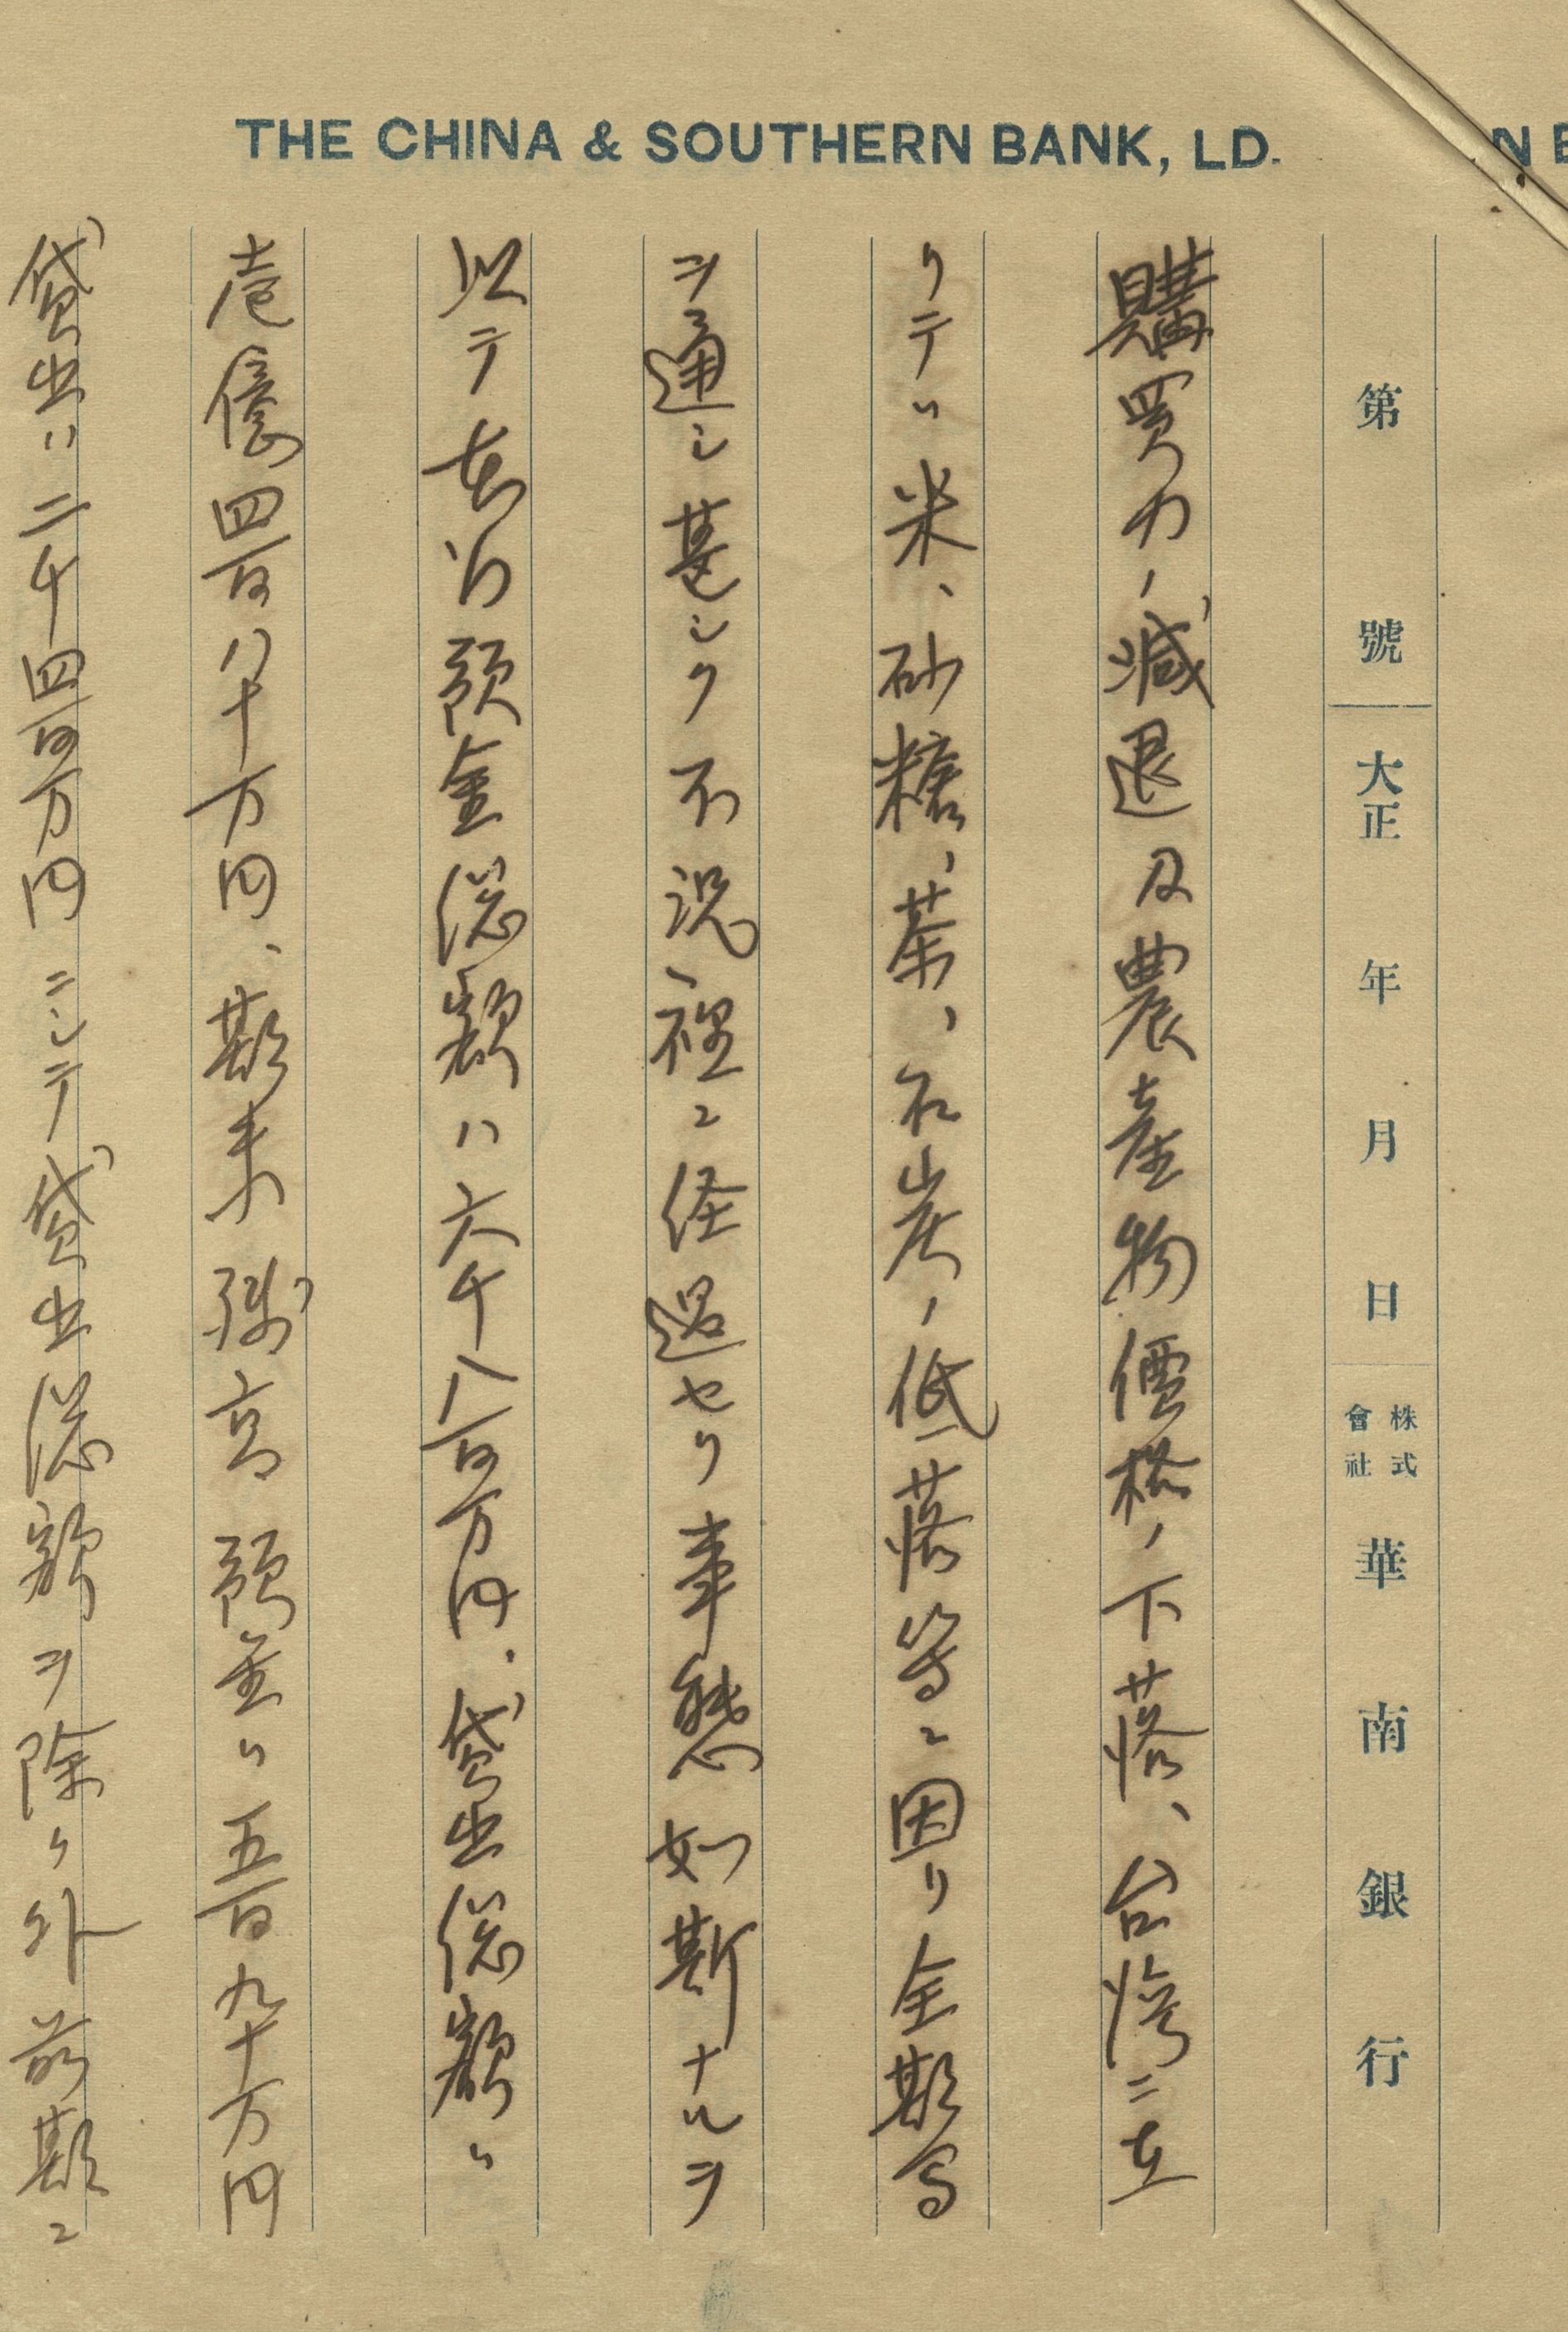 THE CHINA & SOUTHERN BANK, LD.
N B
第 號 大正 年 月 日 株式會社 華南銀行
購買力ノ減退及農産物價格ノ下落、台湾ニ在
リテハ米、砂糖、茶、石炭ノ低落等ニ因リ全期等
ヲ通シ甚シク不況裡ニ経過セリ事態如斯ナルヲ
以テ 預金総額ハ六千八百万円、貸出総額ハ
壱億四百八十万円、期末残高預金ハ五百九十万円
貸出ハ二千四百万円ニシテ貸出総額ヲ除ク外前期ニ